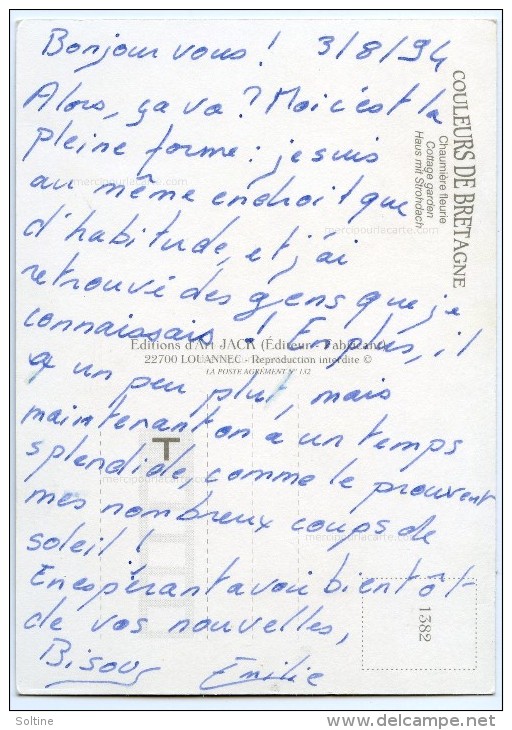 Bonjour vous ! 3/8/94
Alors, ça va ? Moi c'est la
pleine forme : je suis
au même endroit que
d'habitude, et j'ai
retrouvé des gens que je
connaissais ! En plus, il
a un peu plut, mais
maintenant on a un temps
splendide, comme le prouvent
mes nombreux coups de
soleil !
En espérant avoir bientôt
de vos nouvelles,
Bisous Emilie
COULEURS DE BRETAGNE
Chaumière fleurie
Cottage garden
Haus mit Strohdach
Editions d'Art JACK (Éditeur - Fabricant)
22700 LOUANNEC - Reproduction interdite ©
LA POSTE AGRÉMENT N° 132
T
1382
mercipourlacarte.com
mercipourlacarte.com
mercipourlacarte.com
mercipourlacarte.com
Soltine
http://www.delcampe.net